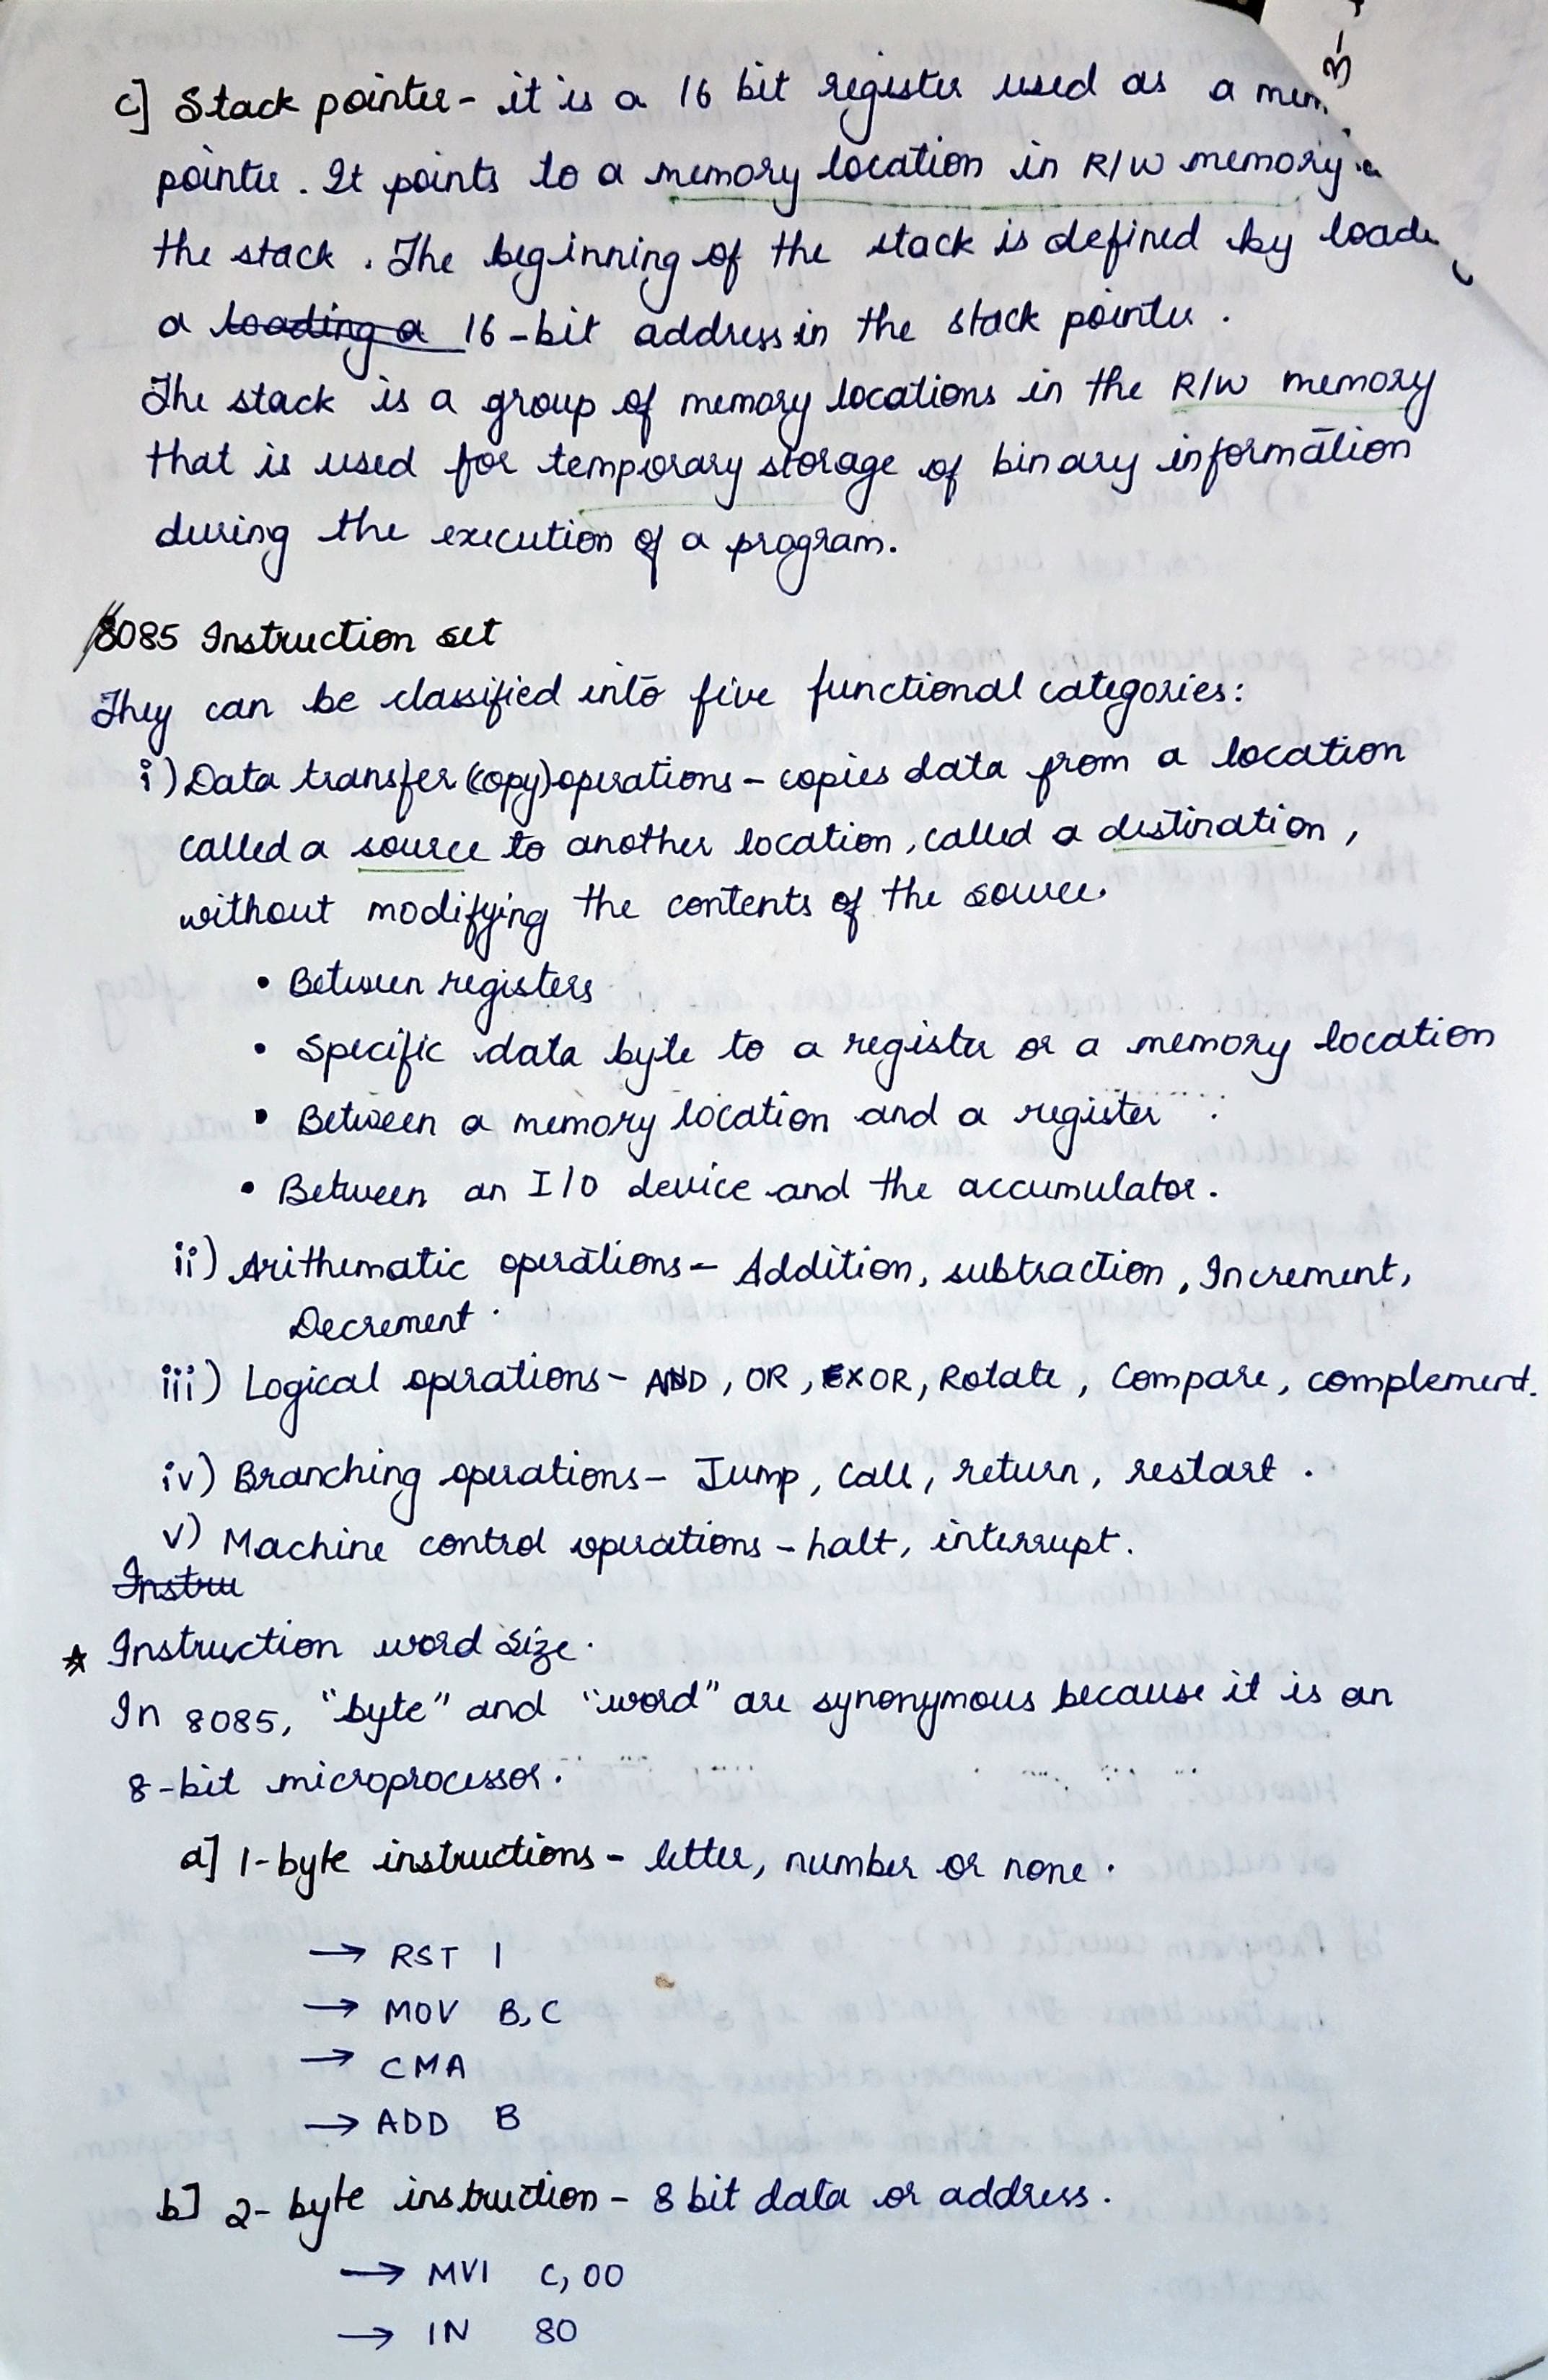 c] Stack pointer - it is a 16 bit register used as a mem
pointer. It points to a memory location in R/W memory
the stack. The beginning of the stack is defined by loadi
a loading a 16-bit address in the stack pointer.
The stack is a group of memory locations in the R/W memory
that is used for temporary storage of binary information
during the execution of a program.
8085 Instruction set
They can be classified into five functional categories:
i) Data transfer (copy) operations - copies data from a location
called a source to another location, called a destination,
without modifying the contents of the source.
• Between registers
• Specific data byte to a register or a memory location
• Between a memory location and a register
• Between an I/O device and the accumulator.
ii) Arithematic operations - Addition, subtraction, Increment,
Decrement.
iii) Logical operations - AND, OR, EXOR, Rotate, Compare, complement.
iv) Branching operations - Jump, Call, return, restart.
v) Machine control operations - halt, interrupt.
Instru
* Instruction word size.
In 8085, "byte" and "word" are synonymous because it is an
8-bit microprocessor.
a] 1-byte instructions - letter, number or none.
→ RST 1
→ MOV B,C
→ CMA
→ ADD B
b] 2-byte instruction - 8 bit data or address.
→ MVI C,00
→ IN 80